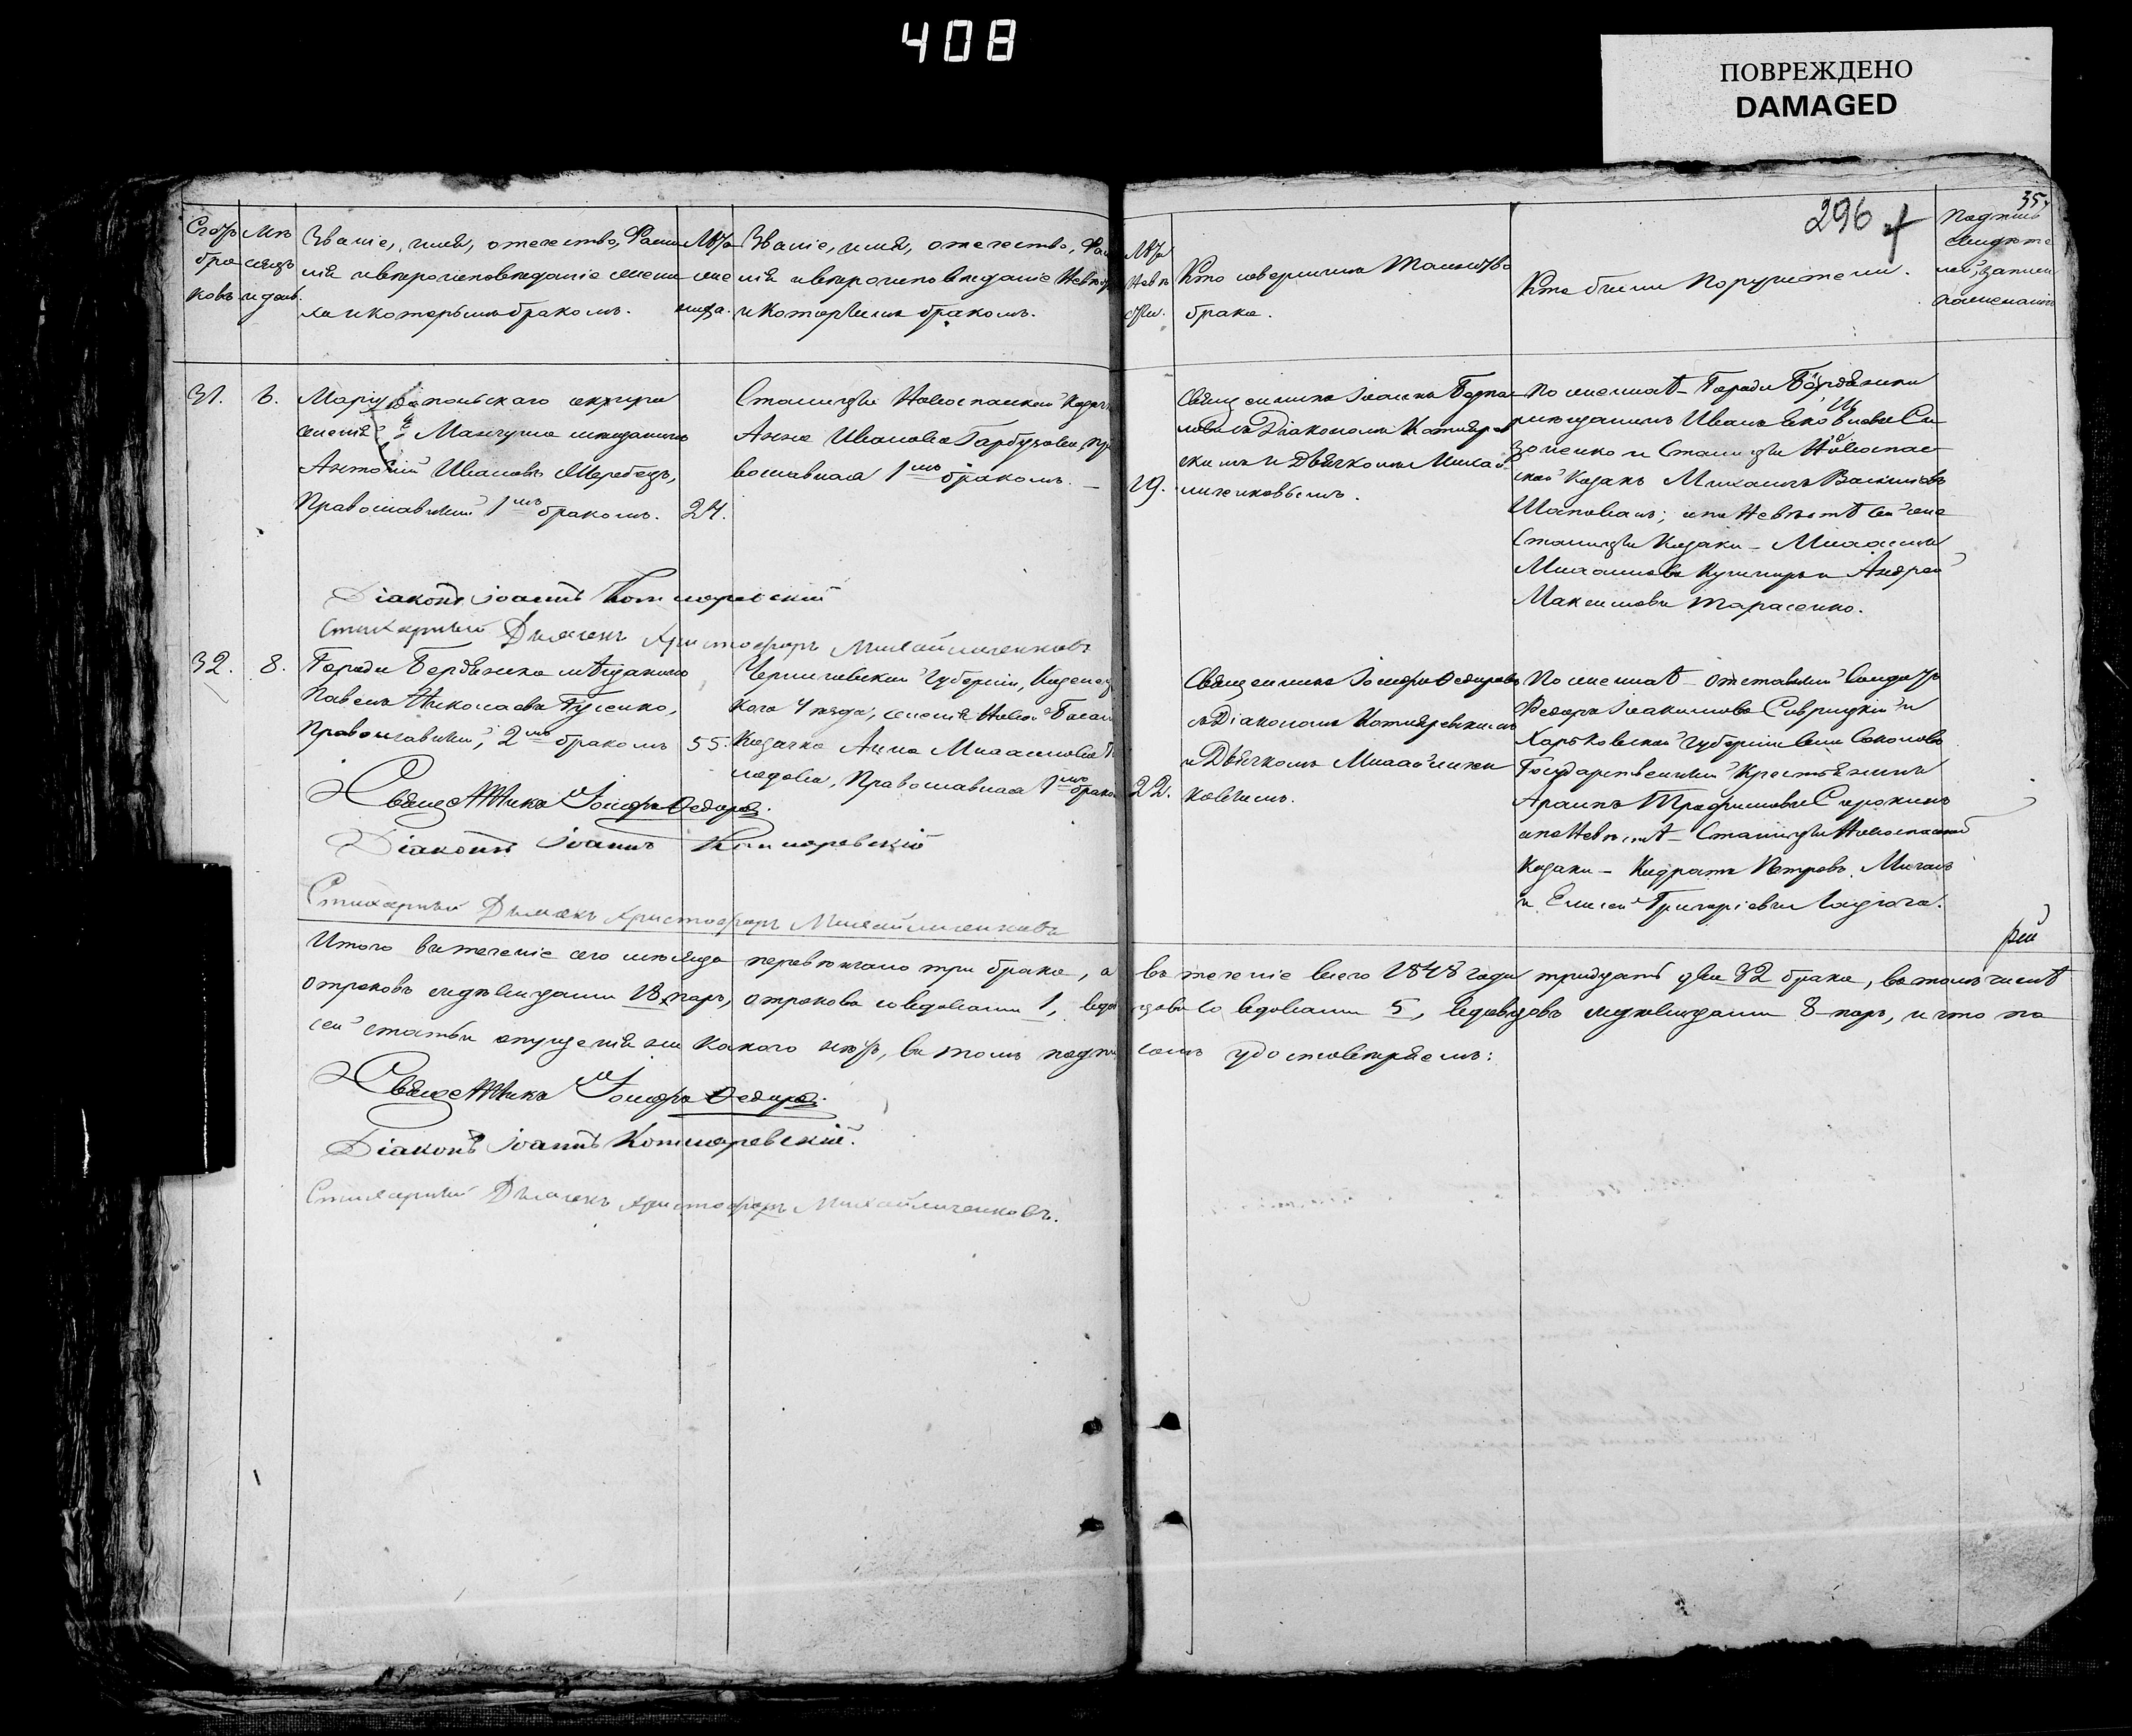 408
ПОВРЕЖДЕНО
DAMAGED
296
35
Счетъ бра ковъ
Мѣ сяцъ и день.
Званіе, имя, отечество, Фами
лія и вѣроисповѣданіе жени
ха и которымъ бракомъ.
Лѣта же ниха.
Званіе, имя, отечество, Фам
лія и вѣроисповѣданіе Невѣс
и которымъ бракомъ.
Лѣта Невѣ сты.
Кто совершилъ Таинство
брака.
Кто были Поручители.
Подпись
свидѣте
лей, записи
31.
6.
Маріупольскаго округа
селенія Мангуша мѣщанинъ
Антоній Ивановъ Жеребецъ,
Православный 1мъ бракомъ.
24.
Станицы Новоспаской Козач
Анна Иванова Гарбузова, пра
вославная 1мъ бракомъ.
19.
Священникъ Іоаннъ
съ Діакономъ Котляров
скимъ и Дьячкомъ Михай
личенковымъ.
По женихѣ – Города Бердянска
мѣщанинъ Иванъ Яковлевъ Си
зоненко и Станицы Новоспас
ской Козакъ Михаилъ Васильевъ
Шаповалъ; а по Невѣстѣ той же
Станицы Козаки – Михаилъ
Михайловъ Кушниръ и Андрей
Максимовъ Тарасенко.
Діаконъ Іоаннъ Котляревскій
Стихарный Дьячекъ Христофоръ Михайличенковъ
32.
8.
Города Бердянска мѣщанинъ
Павелъ Николаевъ Гусенко,
Православный, 2мъ бракомъ
55.
Черниговской Губерніи, Козелец
кого Уѣзда, селенія Новой Басани
Козачка Анна Михайлова
Православная 1мъ брако
22.
Священникъ Іосифъ Федоровъ
съ Діакономъ Котляревскимъ
и Дьячкомъ Михайличен
ковымъ.
По женихѣ – отставный Солдатъ
Федоръ Іоакимовъ Саврицкій и
Харьковской Губерніи Соколова
Государственный Крестьянинъ
Трофимовъ Сорокинъ
а по Невѣстѣ – Станицы Новоспаской
Козаки – Кодратъ Петровъ
и Елисей Григоріевъ
Священникъ Іосифъ Федоровъ.
Діаконъ Іоаннъ Котляревскій
Стихарный Дьячекъ Христофоръ Михайличенковъ
Итого въ теченіе сего мѣсяца перевѣнчано три брака, а въ теченіе всего 1848 года тридцать два 32 брака, въ томъ числѣ
отроковъ съ дѣвицами 18 паръ, отроковъ со вдовами 1, вдовцовъ со вдовами 5, вдовцовъ съ дѣвицами 8 паръ, и что по
сей статьи опущенія ни какого нѣтъ, въ томъ подписомъ удостовѣряемъ:
Священникъ Іосифъ Федоровъ.
Діаконъ Іоаннъ Котляревскій.
Стихарный Дьячекъ Христофоръ Михайличенковъ.